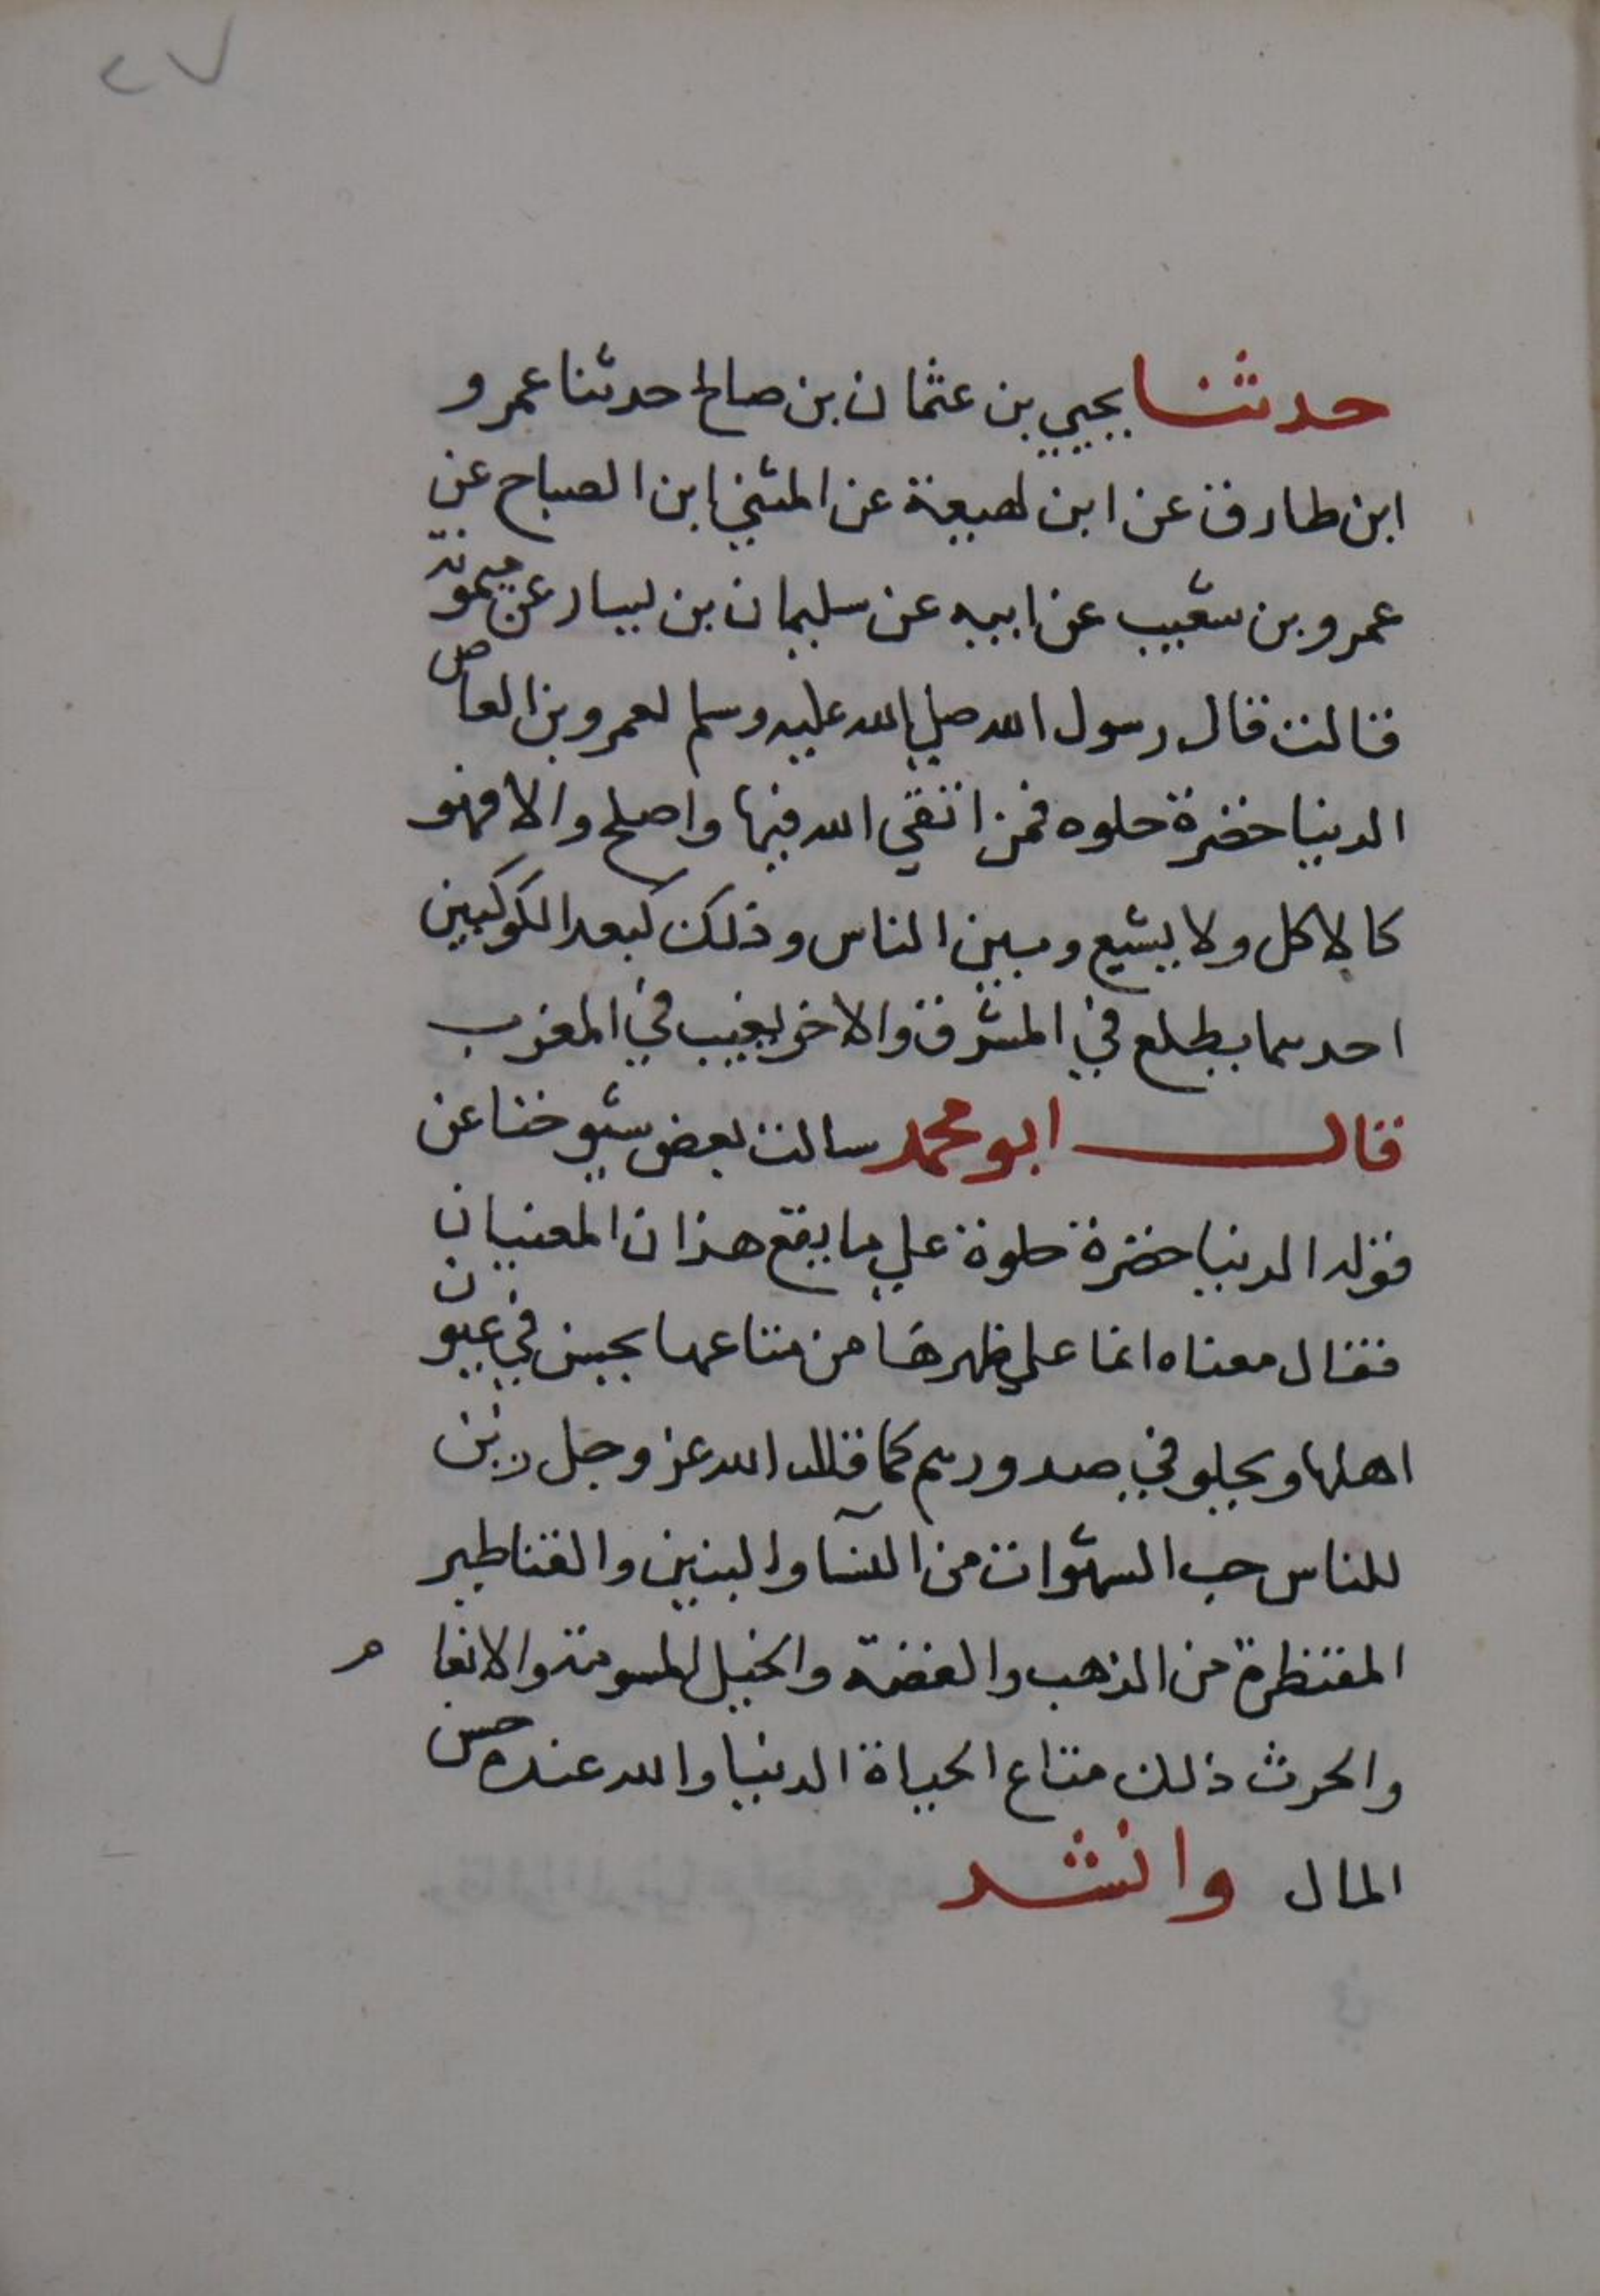 ٢٧
حدثنا يحيي بن عثمان بن صالح حدثنا عمرو
ابن طارق عن ابن لهيعة عن المثني ابن الصباح عن
عمرو بن شعيب عن ابيه عن سليمان بن يسار عن ميمونة
قالت قال رسول الله صلي الله عليه وسلم لعمرو بن العاص
الدنيا خضرة حلوه فمن اتقي الله فيها واصلح والا فهو
كالاكل ولا يشبع وبين الناس وذلك كبعد الكوكبين
احدهما يطلع في المشرق والاخر يغيب في المغرب
قال ابو محمد سالت بعض شيوخنا عن
قوله الدنيا خضرة حلوة علي ما يقع هذان المعنيان
فقال معناه انما علي ظهرها من متاعها يحسن في عيون
اهلها ويحلو في صدورهم كما قال الله عز وجل زين
للناس حب الشهوات من النسآ والبنين والقناطير
المقنظرة من الذهب والفضة والخيل المسومة والانعام
والحرث ذلك متاع الحياة الدنيا والله عنده حسن
المال وانشد